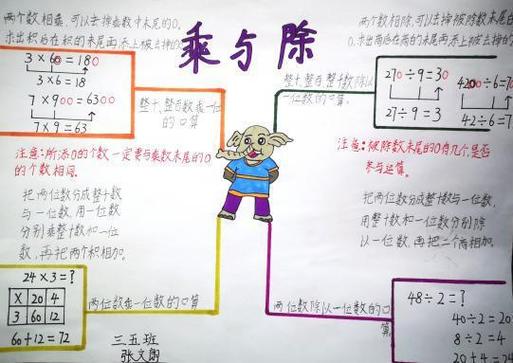 乘与除
两个数相乘,可以去掉乘数中末尾的0,
求出积后在积的末尾再添上被去掉的
3×60=180
3×6=18
7×900=6300
7×9=63
整十、整百数乘一位
的口算
注意:所添0的个数一定要与乘数末尾的0
的个数相同.
把两位数分成整十数
与一位数,用一位数
分别乘整十数和一位
数,再把两个积相加.
24×3=?
X 20 4
3 60 12
60+12=72
两位数乘一位数的口算
三五班
两个数相除,可以去掉被除数末尾的
0.求出商后在商的末尾再添上被去掉的
整十、整百、整十数除以
一位数的口算.
270÷9=30
27÷9=3
4200÷6=70
42÷6=7
注意:被除数末尾的0有几个是否
参与运算.
把两位数分成整十数与一位数,
用整十数和一位数分别除
以一位数,再把二个商相加.
两位数除以一位数的口
算
48÷2=?
40÷2=20
8÷2=4
20+4=24